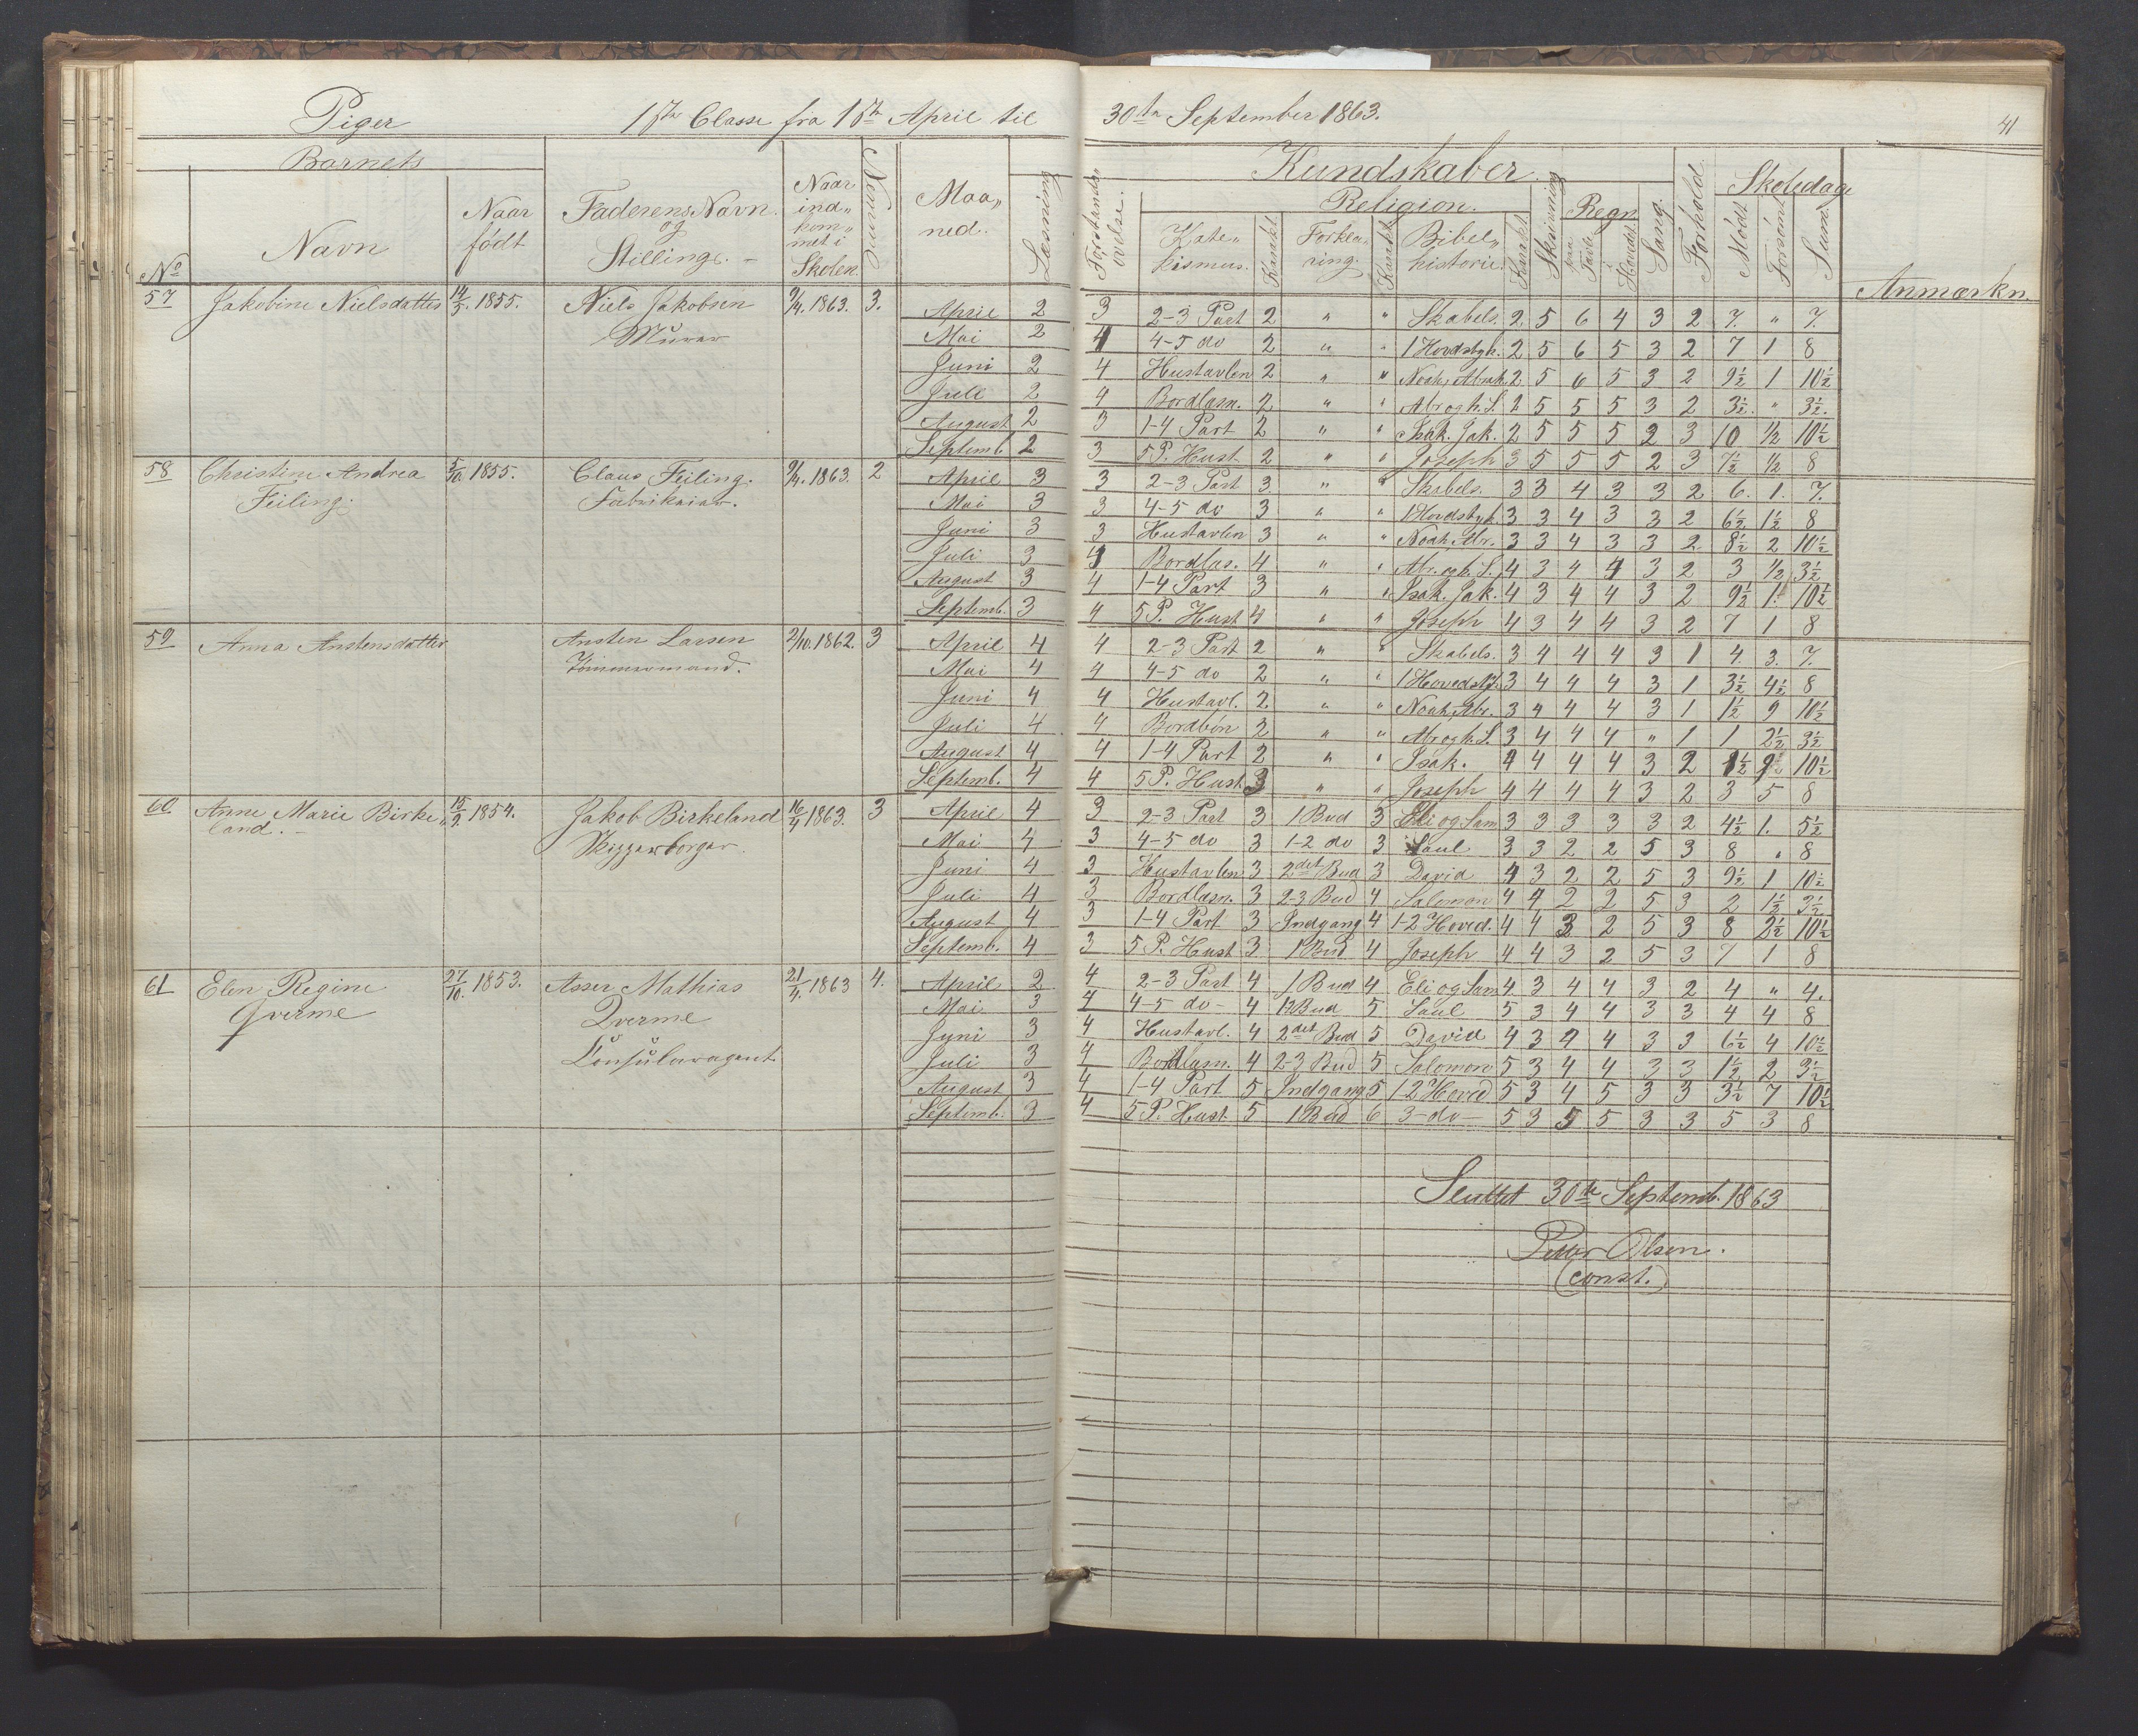 Piger 1ste Classe fra 1ste April til 30te September 1863. 41
Barnets Kundskaber.
No Navn Naar født Faderens Navn og Stilling. Naar ind„ kom„ met i Skolen. Maa„ ned. Læsning Forstands„ øvelse. Religion. Skrivning Regn. Sang. Forhold. Skoledage Anmærkn.
Kate„ kismus. Karakt Forkla„ ring. Karakt Bibel„ historie. Karakt paa Tavle Hovedet Mødt Forsømt Sum.
57 Jakobine Nielsdatter 14/5. 1855. Niels Jakobsen 9/4. 1863. 3. April 2 3 2-3 Part 2 „ „ Skabels. 2 5 6 4 3 2 7. „ 7.
Murer Mai 2 4 4-5 do 2 „ „ 1 Hovdstyk. 2 5 6 5 3 2 7 1 8
Juni 2 4 Hustavlen 2 „ „ Noah, Abrah. 2 5 6 5 3 2 9½ 1 10½
Juli 2 4 Bordlæsn. 2 „ „ Abr og h. S. 2 5 5 5 3 2 3½. „ 3½.
August 2 3 1-4 Part 2 „ „ Isak. Jak. 2 5 5 5 2 3 10 ½ 10½
Septemb. 2 3 5 P. Hust. 2 „ „ Joseph 3 5 5 5 2 3 7½ ½ 8
58 Christine Andrea 5/10. 1855. Claus Feiling. 9/4. 1863. 2 April 3 3 2-3 Part 3 „ „ Skabels. 3 3 4 3 3 2 6. 1. 7.
Feiling. Fabrikeier. Mai 3 3 4-5 do 3 „ „ 1 Hovdstyk. 3 3 4 3 3 2 6½ 1½ 8
Juni 3 3 Hustavlen 3 „ „ Noah, Abr. 3 3 4 3 3 2 8½ 2 10½
Juli 3 4 Bordlæs. 4 „ „ Abr. og h. S. 4 3 4 4 3 2 3 ½ 3½
August 3 4 1-4 Part 3 „ „ Isak. Jak. 4 3 4 4 3 2 9½ 1. 10½
Septemb. 3 4 5 P. Hust 4 „ „ Joseph 4 3 4 4 3 2 7 1 8
59 Anna Anstensdatter Ansten Larsen 2/10. 1862. 3 April 4 4 2-3 Part 2 „ „ Skabels. 3 4 4 4 3 1 4. 3. 7.
Tømmermand. Mai 4 4 4-5 do 2 „ „ 1 Hovedstyk. 3 4 4 4 3 1 3½ 4½ 8
Juni 4 4 Hustavl. 2 „ „ Noah, Abr. 3 4 4 4 3 1 1½ 9 10½
Juli 4 4 Bordbøn 2 „ „ Abr og h. S. 3 4 4 4 „ 1 1 2½ 3½
August 4 4 1-4 Part 2 „ „ Isak. 4 4 4 4 3 2 1½ 9 10½
Septemb. 4 4 5 P. Hust. 3 „ „ Joseph 4 4 4 4 3 2 3 5 8
60 Anne Marie Birke„ 15/9. 1854. Jakob Birkeland 16/4 1863. 3 April 4 3 2-3 Part 3 1 Bud 3 Eli og Sam 3 3 3 3 3 2 4½ 1. 5½
land. Skipperborger. Mai 4 3 4-5 do 3 1-2 do 3 Saul 3 3 2 2 5 3 8 „ 8
Juni 4 3 Hustavlen 3 2det Bud 3 David 4 3 2 2 5 3 9½ 1 10½
Juli 4 3 Bordlæsn. 3 2-3 Bud 4 Salomon 4 4 2 2 5 3 2 1½ 3½
August 4 3 1-4 Part 3 Indgang 4 1-2 Hoved. 4 4 3 2 5 3 8 2½ 10½
Septemb. 4 3 5 P. Hust 3 1 Bud 4 Joseph 4 4 3 2 5 3 7 1 8
61 Elen Regine 27/10. 1853. Asser Mathias 21/4. 1863 4. April 2 4 2-3 Part 4 1 Bud 4 Eli og Sam 4 3 4 4 3 2 4 „ 4.
Qverme Qverme Mai 3 4 4-5 do- 4 1-2 Bud 5 Saul 5 3 4 4 3 3 4 4 8
Consularagent. Juni 3 4 Hustavl. 4 2det Bud 5 David 4 3 4 4 3 3 6½ 4 10½
Juli 3 4 Bordlæsn. 4 2-3 Bud 5 Salomon 5 3 4 4 3 3 1½ 2 3½
August 3 4 1-4 Part 5 Indgang 5 1-2 Hoved 5 3 4 5 3 3 3½ 7 10½
Septemb. 3 4 5 P. Hust. 5 1 Bud 6 3-do- 5 3 5 5 3 3 5 3 8
Sluttet 30te Septemb. 1863
Peter Olsen.
(const.)